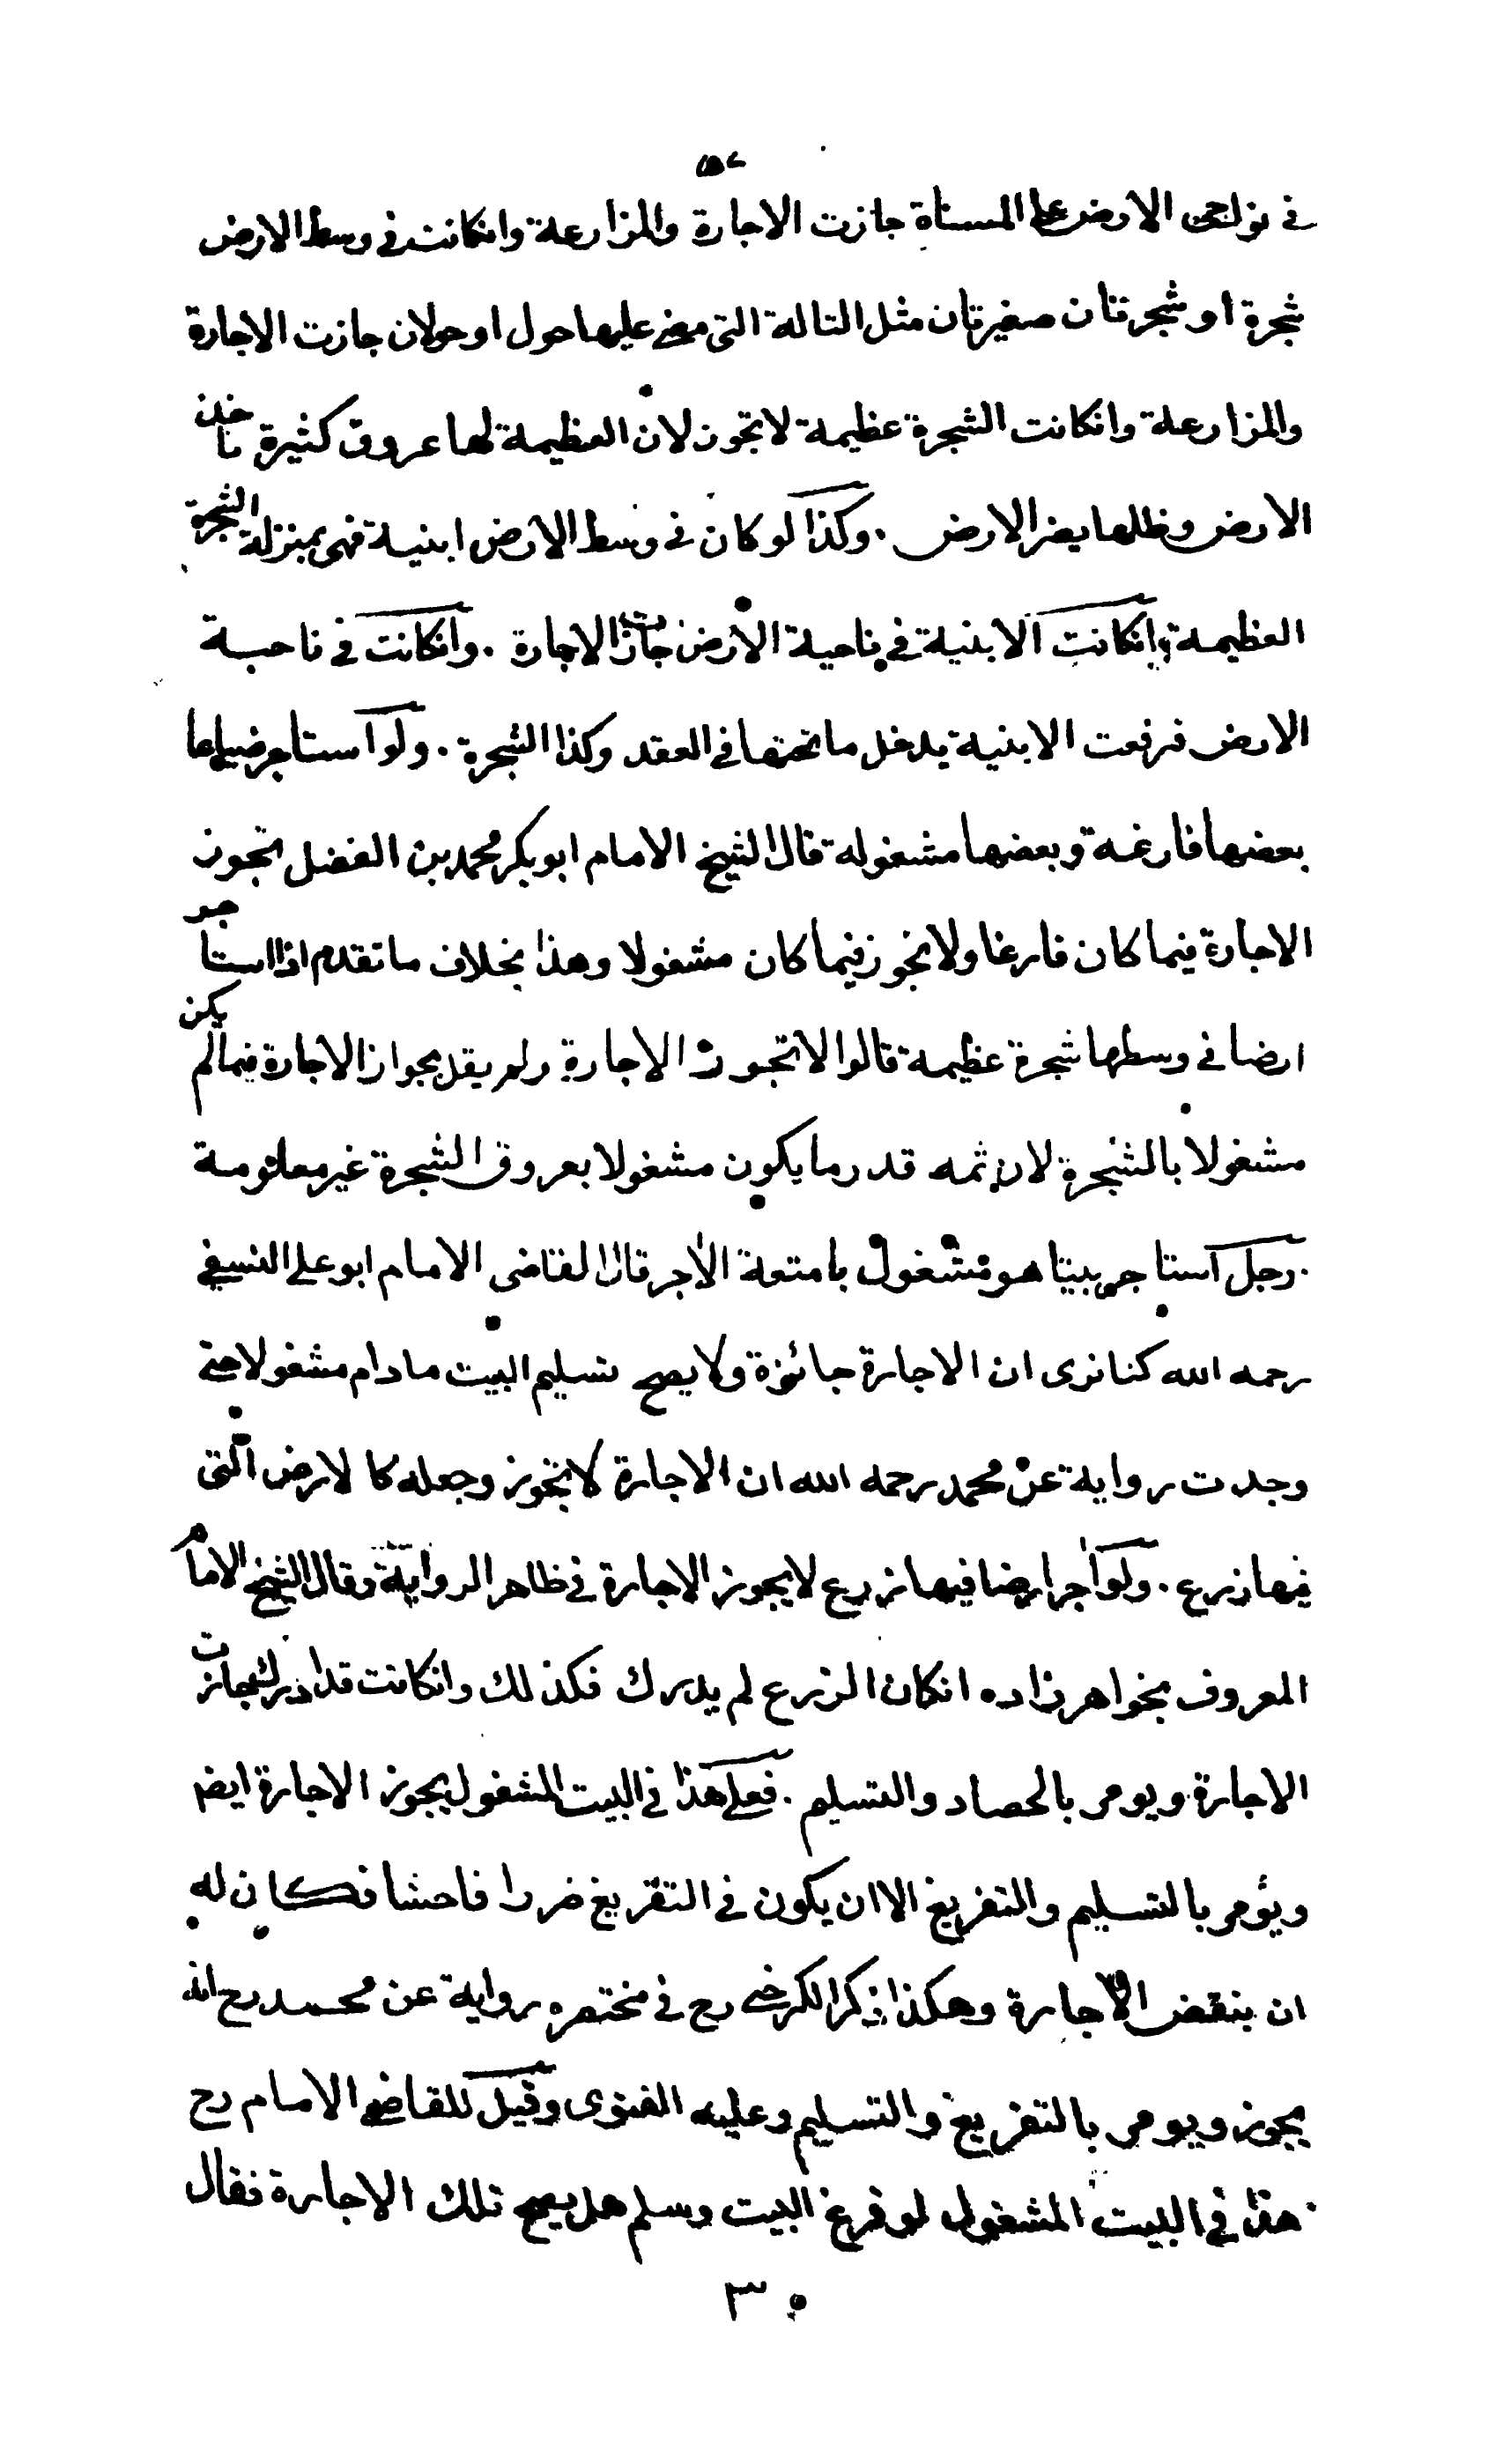 في نواحى الارض على المسناة جازت الاجارة والمزارعة وانكانت في وسط الارض
شجرة او شجرتان صغيرتان مثل التالة التى مضى عليها حول او حولان جازت الاجارة
والمزارعة وانكانت الشجرة عظيمة لا تجوز لان العظيمة لها عروق كثيرة تاخذ
الارض وظلها يضر الارض . وكذا لو كان في وسط الارض ابنية فهى بمنزلة الشجرة
العظيمة وانكانت الابنية في ناحية الارض جازت الاجارة . وانكانت في ناحية
الارض فرفعت الابنية يدخل ما تحتها في العقد وكذا الشجرة . ولو استاجر ضياعا
بعضها فارغة وبعضها مشغولة قال الشيخ الامام ابو بكر محمد بن الفضل تجوز
الاجارة فيما كان فارغا ولا تجوز فيما كان مشغولا وهذا بخلاف ما تقدم اذا استاجر
ارضا في وسطها شجرة عظيمة قالوا لا تجوز الاجارة ولم يقل بجواز الاجارة فيما لم يكن
مشغولا بالشجرة لان ثمه قدر ما يكون مشغولا بعروق الشجرة غير معلومة
. رجل استاجر بيتا هو مشغول بامتعة الآجر قال القاضى الامام ابو على النسفي
رحمه الله كنا نرى ان الاجارة جائزة ولا يصح تسليم البيت ما دام مشغولا حتى
وجدت رواية عن محمد رحمه الله ان الاجارة لا تجوز وجعله كالارض التى
فيها زرع . ولو آجر ارضا فيها زرع لا يجوز الاجارة في ظاهر الرواية وقال الشيخ الامام
المعروف بخواهر زاده انكان الزرع لم يدرك فكذلك وانكانت قد ادرك جازت
الاجارة ويومر بالحصاد والتسليم . فعلى هذا في البيت المشغول يجوز الاجارة ايض
ويؤمر بالتسليم والتفريغ الا ان يكون في التفريغ ضررا فاحشا فكان له
ان ينقض الاجارة وهكذا ذكر الكرخى رح في مختصره رواية عن محمد رح انه
يجوز ويومر بالتفريغ والتسليم وعليه الفتوى وقيل للقاضى الامام رح
هذا في البيت المشغول لو فرغ البيت وسلم هل يصح تلك الاجارة فقال
٣٠